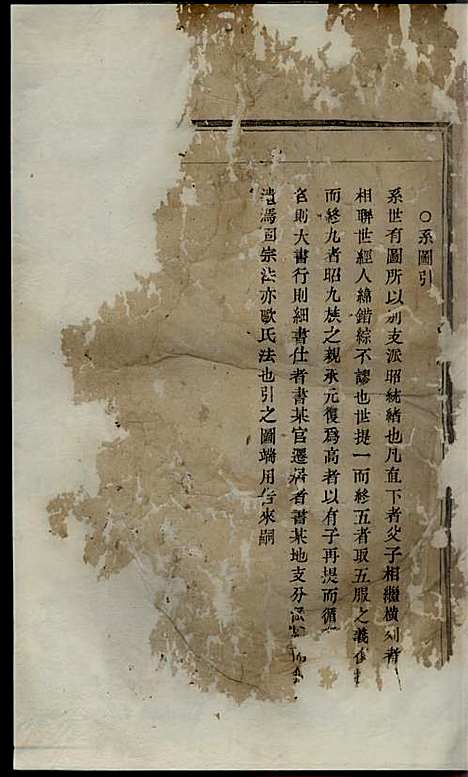 ○系圖引
系世有圖所以別支派昭統緒也凡直下者父子相繼橫列者
相聯世經人緯錯綜不謬也世提一而終五者取五服之義
而終九者昭九族之親承元復為高者以有子再提而循
名則大書行則細書仕者書某官遷居者書某地支分
遺焉固宗法亦歐氏法也引之圖端用告來嗣